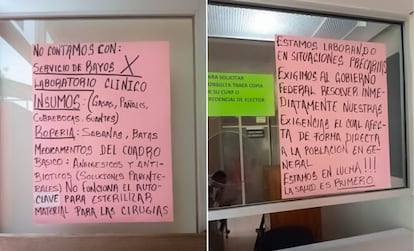 NO CONTAMOS CON:
SERVICIO DE RAYOS X
LABORATORIO CLINICO
INSUMOS: (GASAS, PAÑALES,
CUBREBOCAS, GUANTES)
ROPERIA: SABANAS, BATAS
MEDICAMENTOS DEL CUADRO
BASICO: ANALGESICOS Y ANTI-
BIOTICOS (SOLUCIONES PARENTE-
RALES) NO FUNCIONA EL AUTO-
CLAVE PARA ESTERILIZAR
MATERIAL PARA LAS CIRUGIAS
PARA SOLICITAR
CONSULTA TRAER COPIA
DE SU CURP O
CREDENCIAL DE ELECTOR
ESTAMOS LABORANDO
EN SITUACIONES PRECARIAS
EXIGIMOS AL GOBIERNO
FEDERAL RESOLVER INME-
DIATAMENTE NUESTRAS
EXIGENCIAS EL CUAL AFEC-
TA DE FORMA DIRECTA
A LA POBLACION EN GE-
NERAL
ESTAMOS EN LUCHA!!!
LA SALUD ES PRIMERO